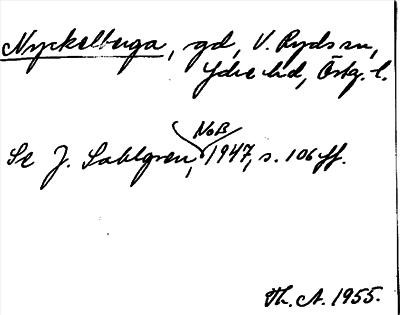 Nyckelberga, gd, V. Ryds sn,
Ydre hd, Östg. l.
NoB
Se J. Sahlgren, 1947, s. 106 ff.
Th. A. 1955.